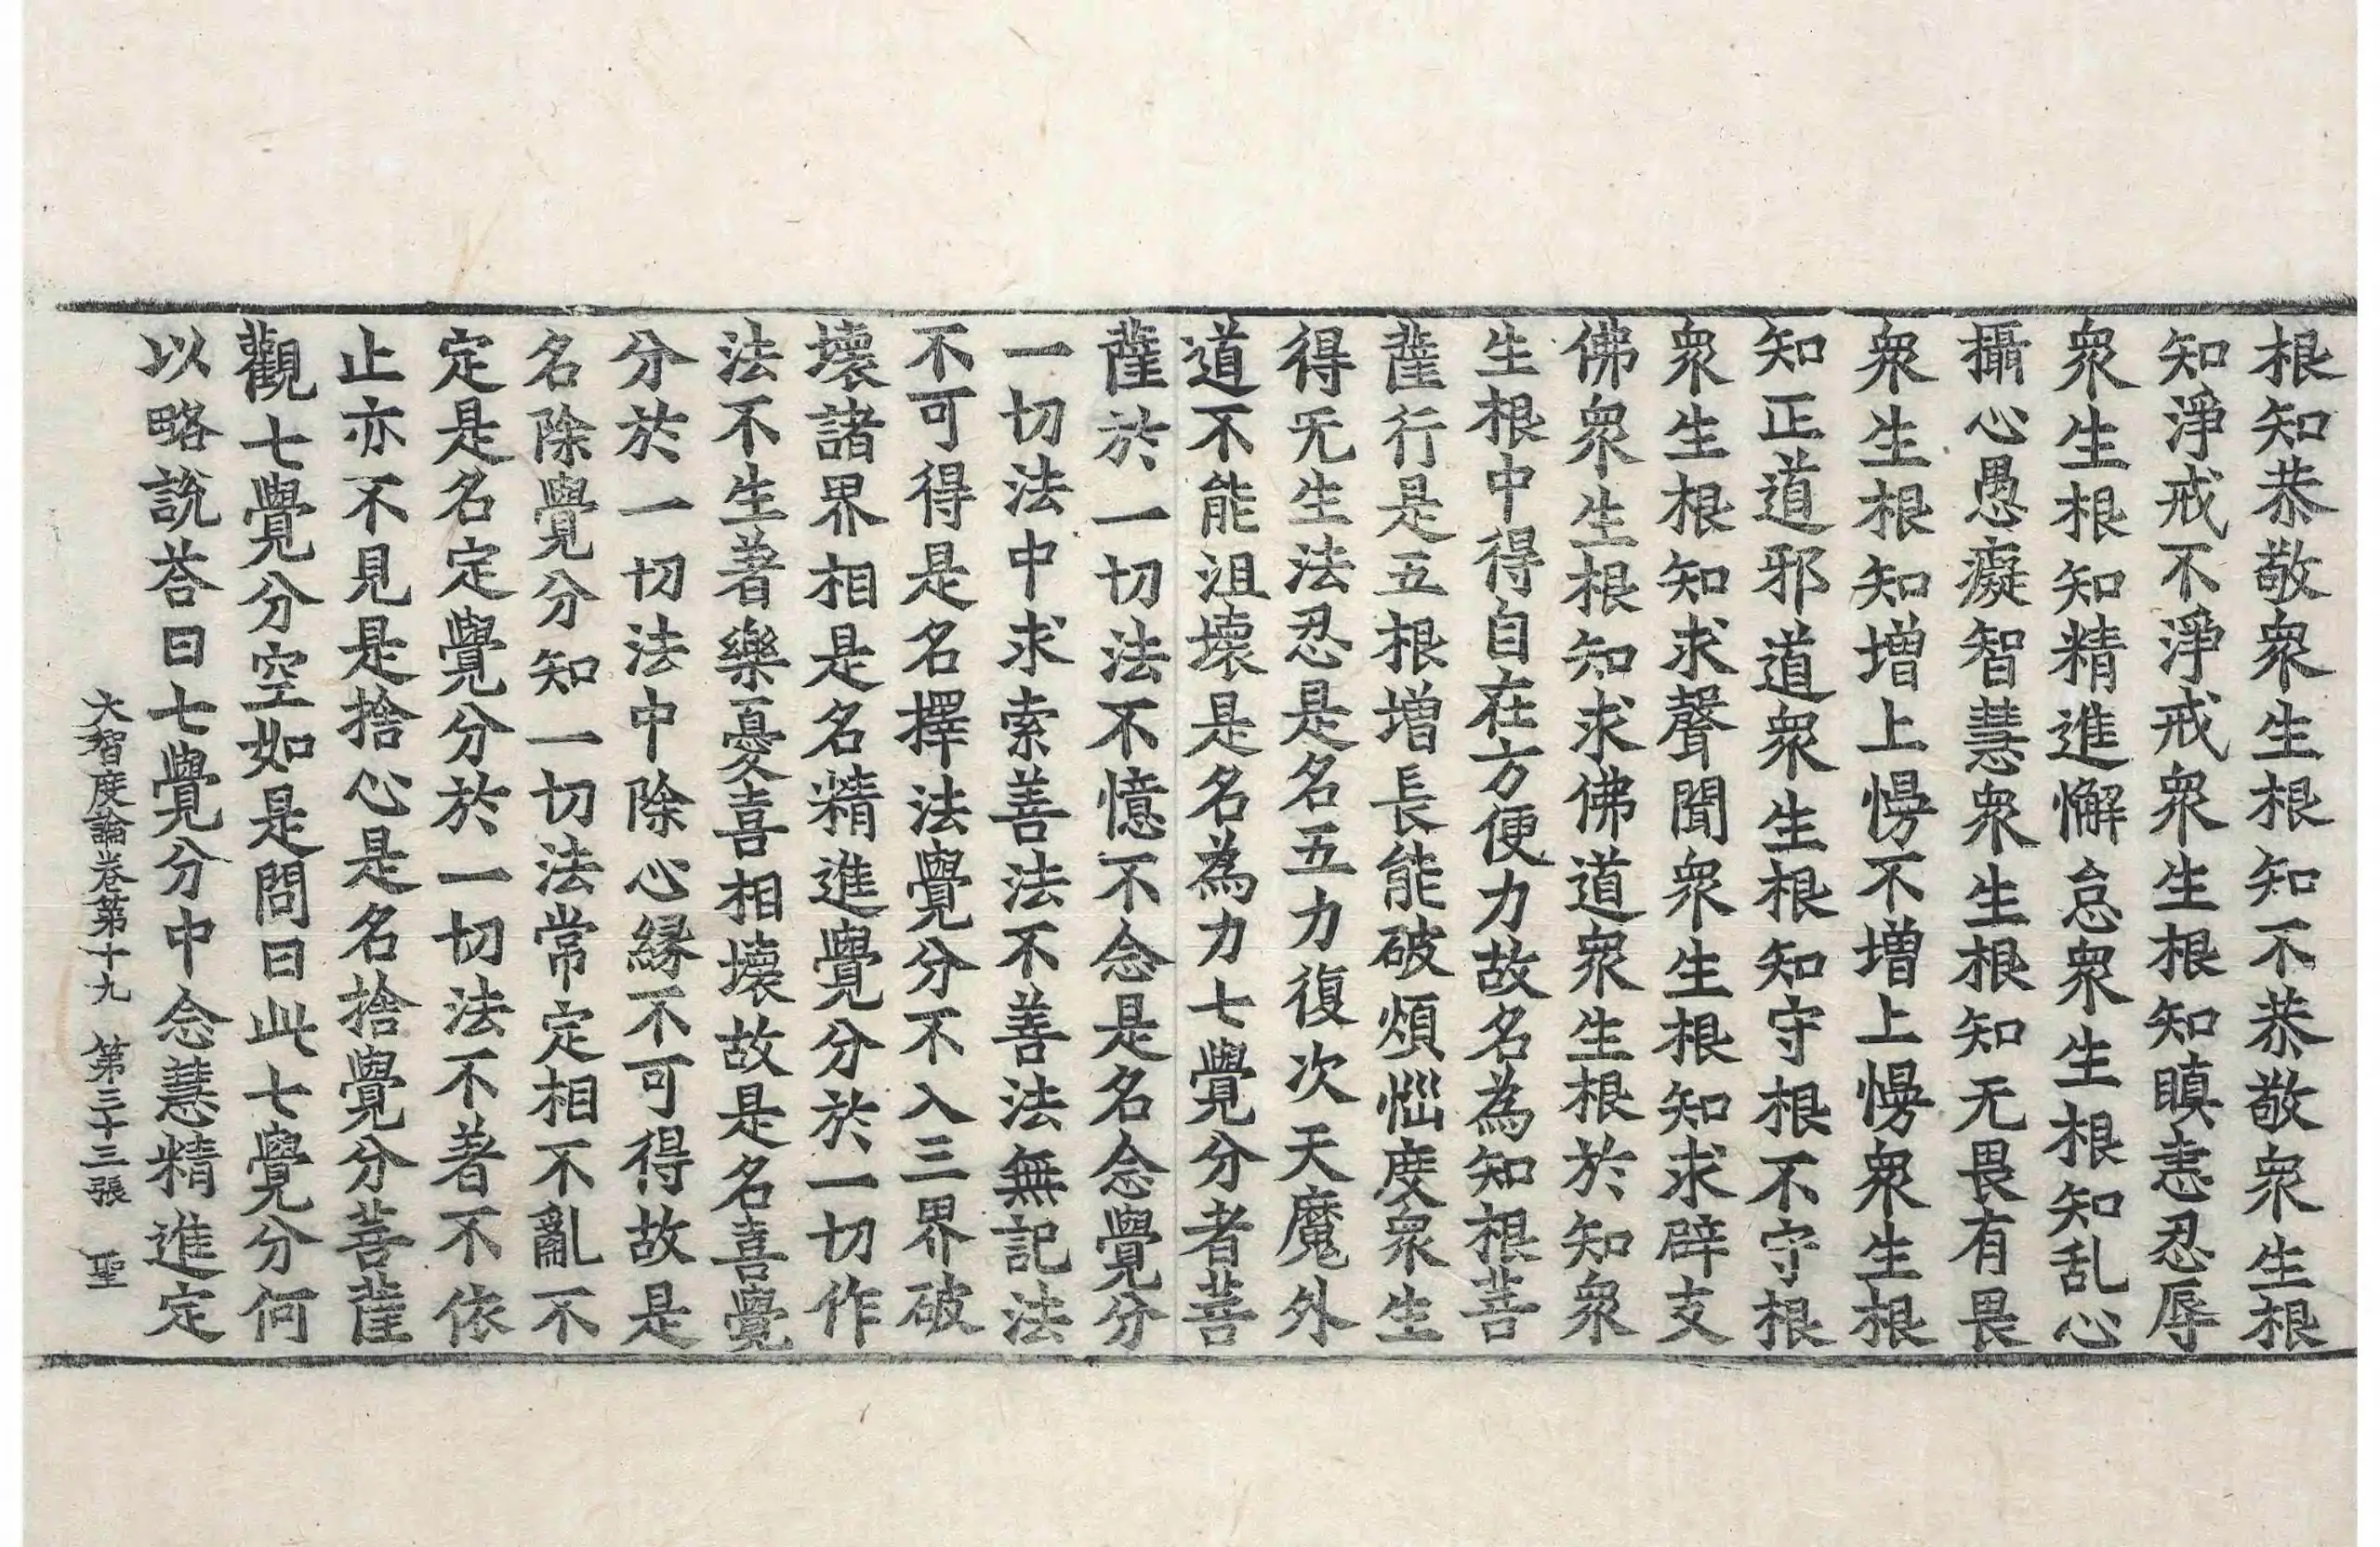 根知恭敬衆生根知不恭敬衆生根
知淨戒不淨戒衆生根知瞋恚忍辱
衆生根知精進懈怠衆生根知乱心
攝心愚癡智慧衆生根知无畏有畏
衆生根知增上慢不增上慢衆生根
知正道邪道衆生根知守根不守根
衆生根知求聲聞衆生根知求辟支
佛衆生根知求佛道衆生根於知衆
生根中得自在方便力故名為知根菩
薩行是五根增長能破煩惱度衆生
得无生法忍是名五力復次天魔外
道不能沮壞是名為力七覺分者菩
薩於一切法不憶不念是名念覺分
一切法中求索善法不善法無記法
不可得是名擇法覺分不入三界破
壞諸界相是名精進覺分於一切作
法不生著樂憂喜相壞故是名喜覺
分於一切法中除心緣不可得故是
名除覺分知一切法常定相不亂不
定是名定覺分於一切法不著不依
止亦不見是捨心是名捨覺分菩薩
觀七覺分空如是問曰此七覺分何
以略說荅曰七覺分中念慧精進定
大智度論卷第十九　第三十三張　聖